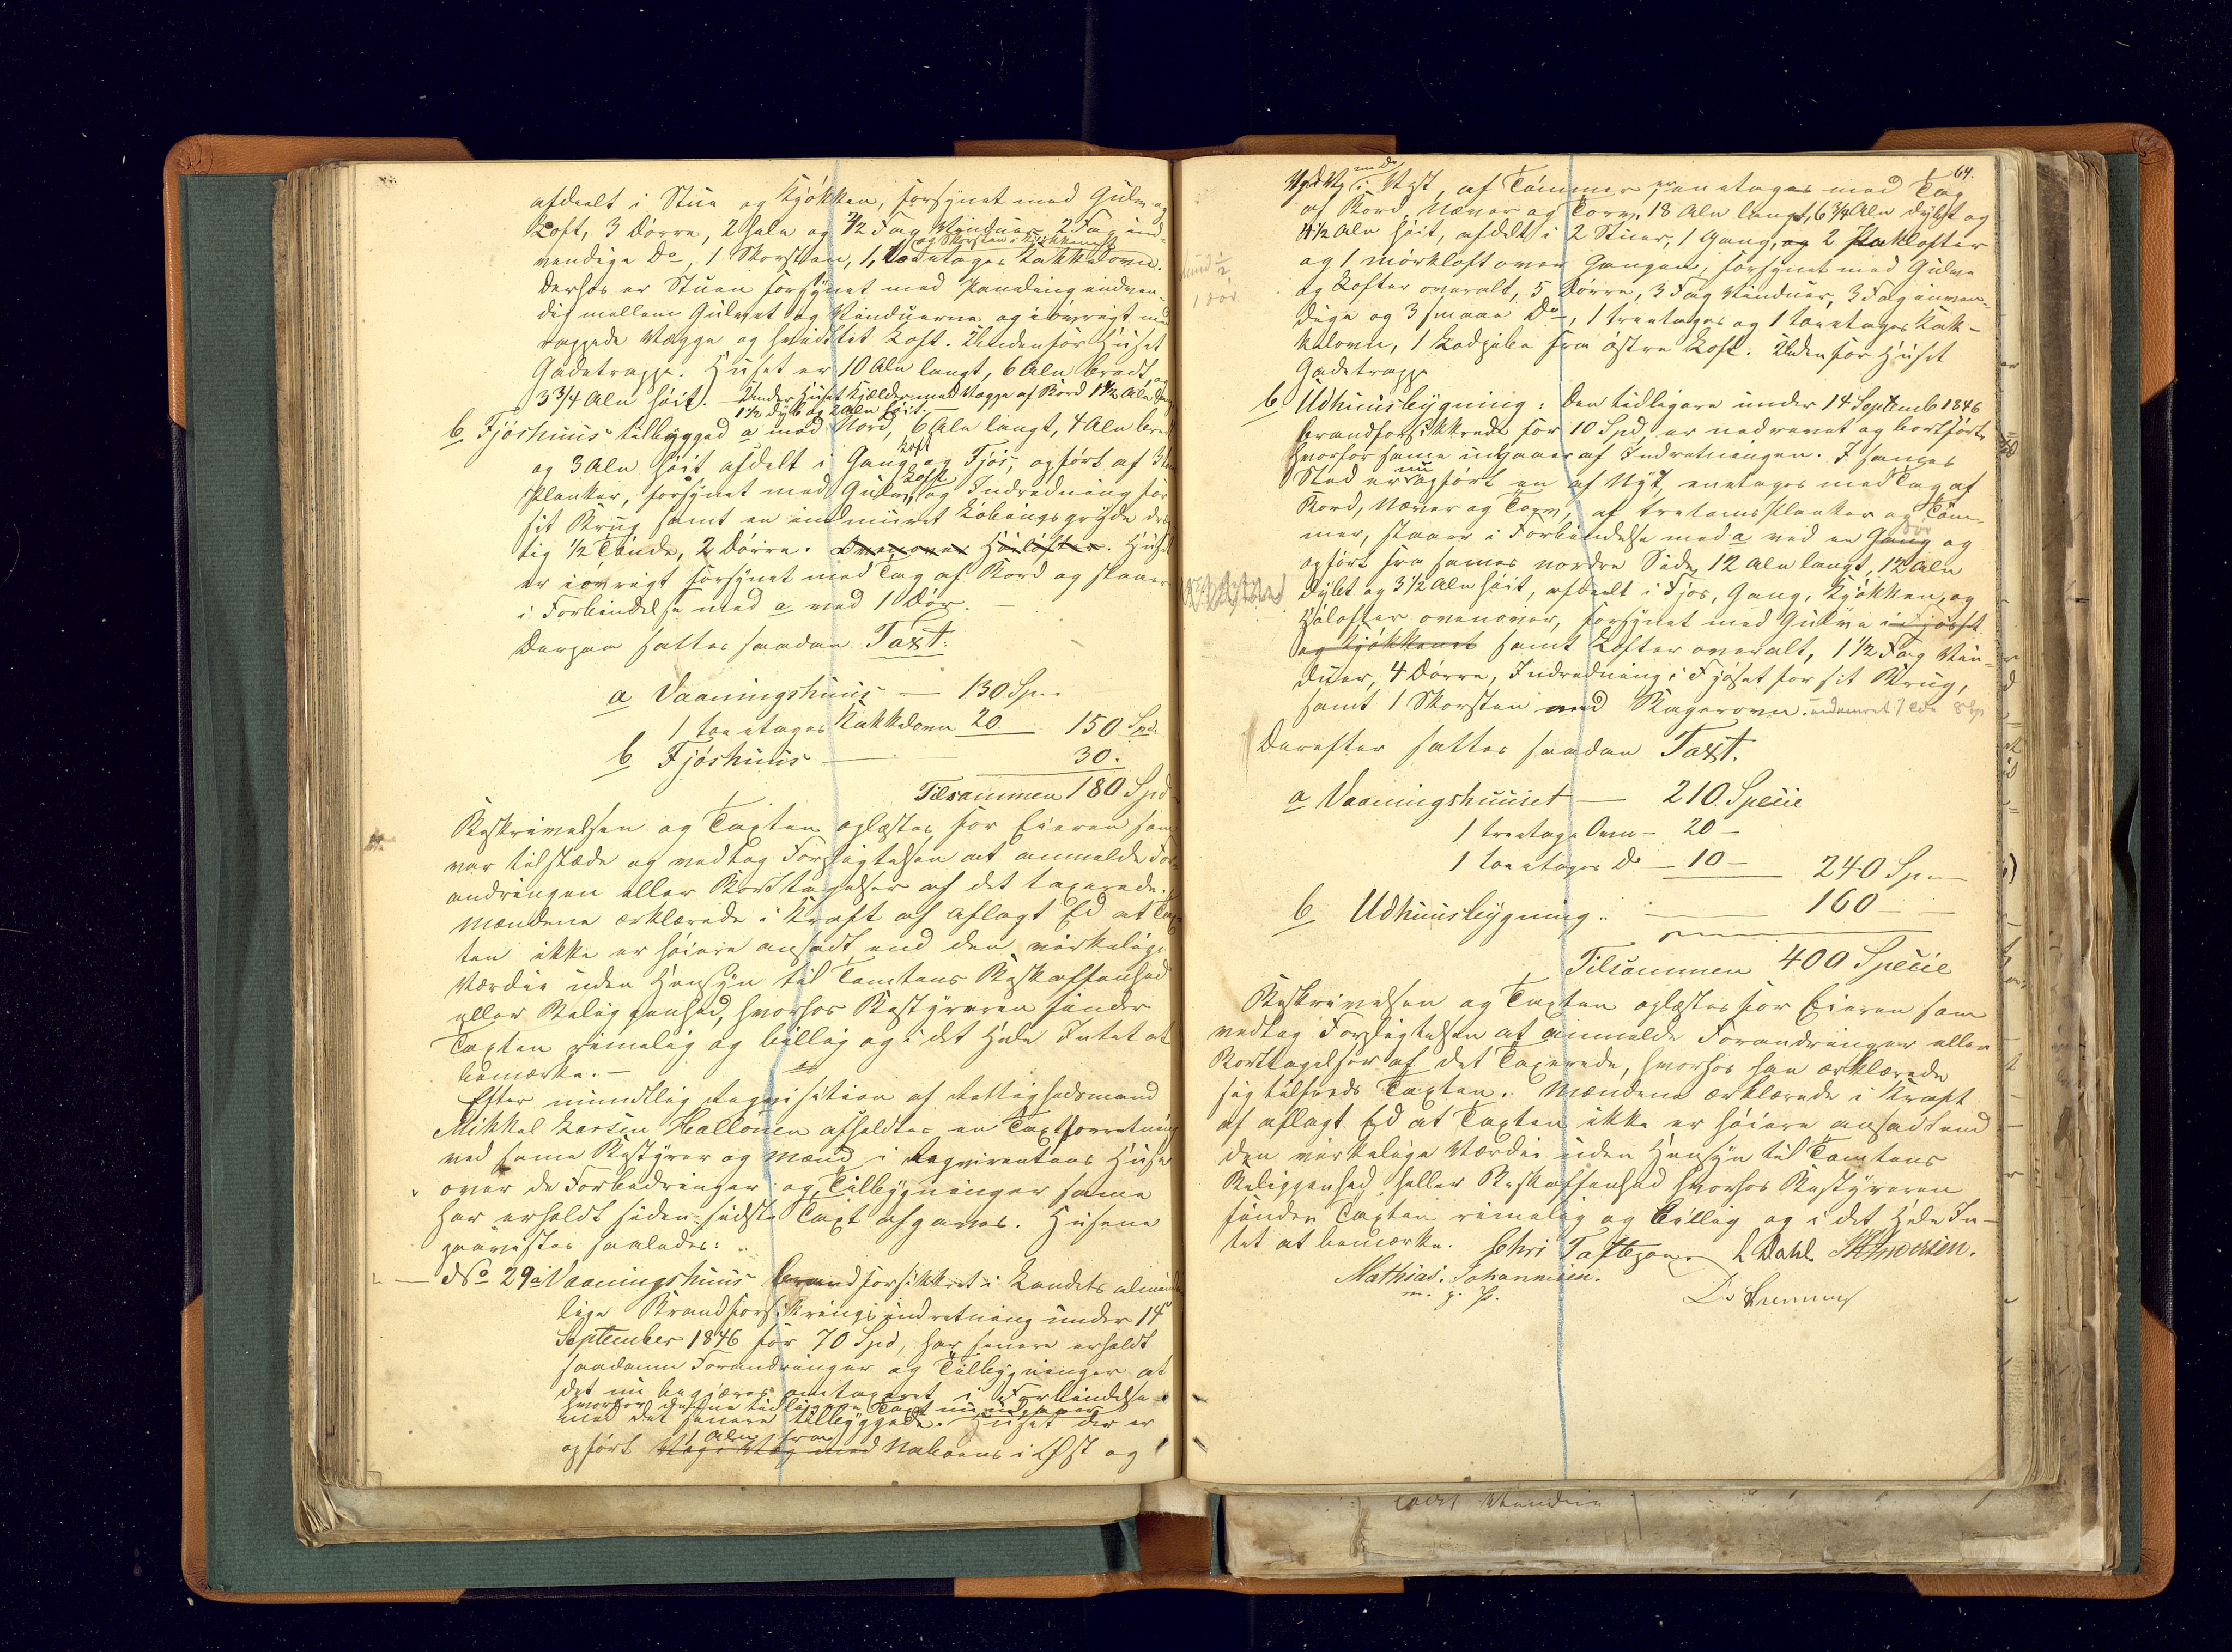 afdeelt i Stue og Kjøkken, forsynet med Gulv og
Loft, 3 Dørre, 2 hele og 2/2 Fag Vinduer, 2 Fag ind-
og Skorsten i Kjøkkenet
vendige Do, 1 Skorsten, 1, toeetages Kakkelovn.
Derhos er Stuen forsynet med Paneling indven-
dig mellem Gulvet og Vinduerne og iøvrigt med
rappede Vægge og hvidtet Loft. Udenfor Huset
Gadetrappe. Huset er 10 Alen langt, 6 Alen bredt, og
3 3/4 Alen høit. – Under Huset Kjælder med Vægge af Bord 1 1/2 Alen
1 1/2 dyb og 2 Alen høit. –
b Fjøshuus tilbygged a mod Nord, 6 Alen langt, 4 Alen bred
Loft
og 3 Alen høit afdelt i Gang og Fjøs, opført af 3
Loft
Planker, forsynet med Gulv, og Indredning for
sit Brug samt en indmuret Løbingsgryde
tig 1/2 Tønde, 2 Dørre. Ovenover Høilofter. Huset
er iøvrigt forsynet med Tag af Bord og staaer
i Forbindelse med a ved 1 Dør. –
Derpaa sattes saadan Taxt:
a Vaaningshuus — 130 Sp.
1 toeetages Kakkelovn 20. — 150 Spd.
b Fjøshuus — 30.
Tilsammen 180 Spd
Beskrivelsen og Taxten oplæstes for Eieren som
var tilstæde og vedtog Forpligtelsen at anmelde For-
andringen eller Borttagelser af det taxerede.
Mændene erklærede i Kraft af aflagt Ed at Tax-
ten ikke er høiere ansadt end den virkelige
Værdie uden Hensyn til Tomtens Beskaffenhed
eller Beliggenhed, hvorhos Bestyreren finder
Taxten rimelig og billig og i det Hele Intet at
bemærke. –
Efter mundtlig Reqvisition af Rettighedsmand
Mikkel Larsen Hallonen afholdtes en Taxtforretning
ved samme Bestyrer og Mænd i Reqvirentens Huse
over de Forbedringer og Tilbygninger samme
har erholdt siden sidste Taxt afgaves. Husene
paavistes saaledes:
No 29 a Vaaningshuus brandforsikkret i Landets alminde
lige Brandforsikringsindretning under 14
September 1846 for 70 Spd, har senere erholdt
saadanne Forandringer og Tilbygninger at
det nu begjæres omtaxeret i Forbindelse
hvorfor dettes tidligere Taxt nu udgaaer
med det senere tilbyggede. Huset der er
1 Alen fra
opført Væg i Væg med Naboens i Øst og
64.
med Do
Væg i Væg i Vest, af Tømmer, er eenetages med Tag
af Bord, Næver og Torv, 18 Alen langt, 6 3/4 Alen dybt og
4 1/2 Alen høit, afdelt i 2 Stuer, 1 Gang, og 2 Stuelofter
og 1 mørkloft over Gangen, forsynet med Gulve
og Lofter overalt, 5 Dørre, 3 Fag Vinduer, 3 Fag inven-
dige og 3 smaae Do, 1 treetages og 1 toeetages Kak-
kelovn, 1 Ledpibe fra østre Loft. Udenfor Huset
Gadetrappe
b Udhuusbygning: Den tidligere under 14 Septemb 1846
brandforsikkrede for 10 Spd, er nedrevet og bortført,
hvorfor samme udgaaer af Indretningen. I sammes
nu
Sted er opført en af Nyt, eenetages med Tag af
Bord, Næver og Torv, af tretoms Planker og Tøm-
Dør
mer, staaer i Forbindelse med a ved en Gang og
opført fra sammes nordre Side, 12 Alen langt, 12 Alen
dybt og 3 1/2 Alen høit, afdeelt i Fjøs, Gang, Kjøkken, og
Høilofter ovenover, forsynet med Gulve i Fjøset
og Kjøkkenet samt Lofter overalt, 1 1/2 Fag Vin-
duer, 4 Dørre, Indredning i Fjøset for sit Brug,
samt 1 Skorsten med Bagerovn. indmuret
Derefter sattes saadan Taxt.
a Vaaningshuuset — 210 Specie
1 treetages Ovn – 20 –
1 toeetages Do – 10 – 240 Sp. –
b Udhuusbygning — 160 –
Tilsammen 400 Specie
Beskrivelsen og Taxten oplæstes for Eieren som
vedtog Forpligtelsen at anmelde Forandringer eller
Borttagelser af det Taxerede, hvorhos han erklærede
sig tilfreds Taxten. Mændene erklærede i Kraft
af aflagt Ed at Taxten ikke er høiere ansadt end
den virkelige Værdie uden Hensyn til Tomtens
Beliggenhed eller Beskaffenhed hvorhos Bestyreren
finder Taxten rimelig og billig og i det Hele In-
tet at bemærke. Chri L Dahl.
Mathias Johannesen.
m. p. P.